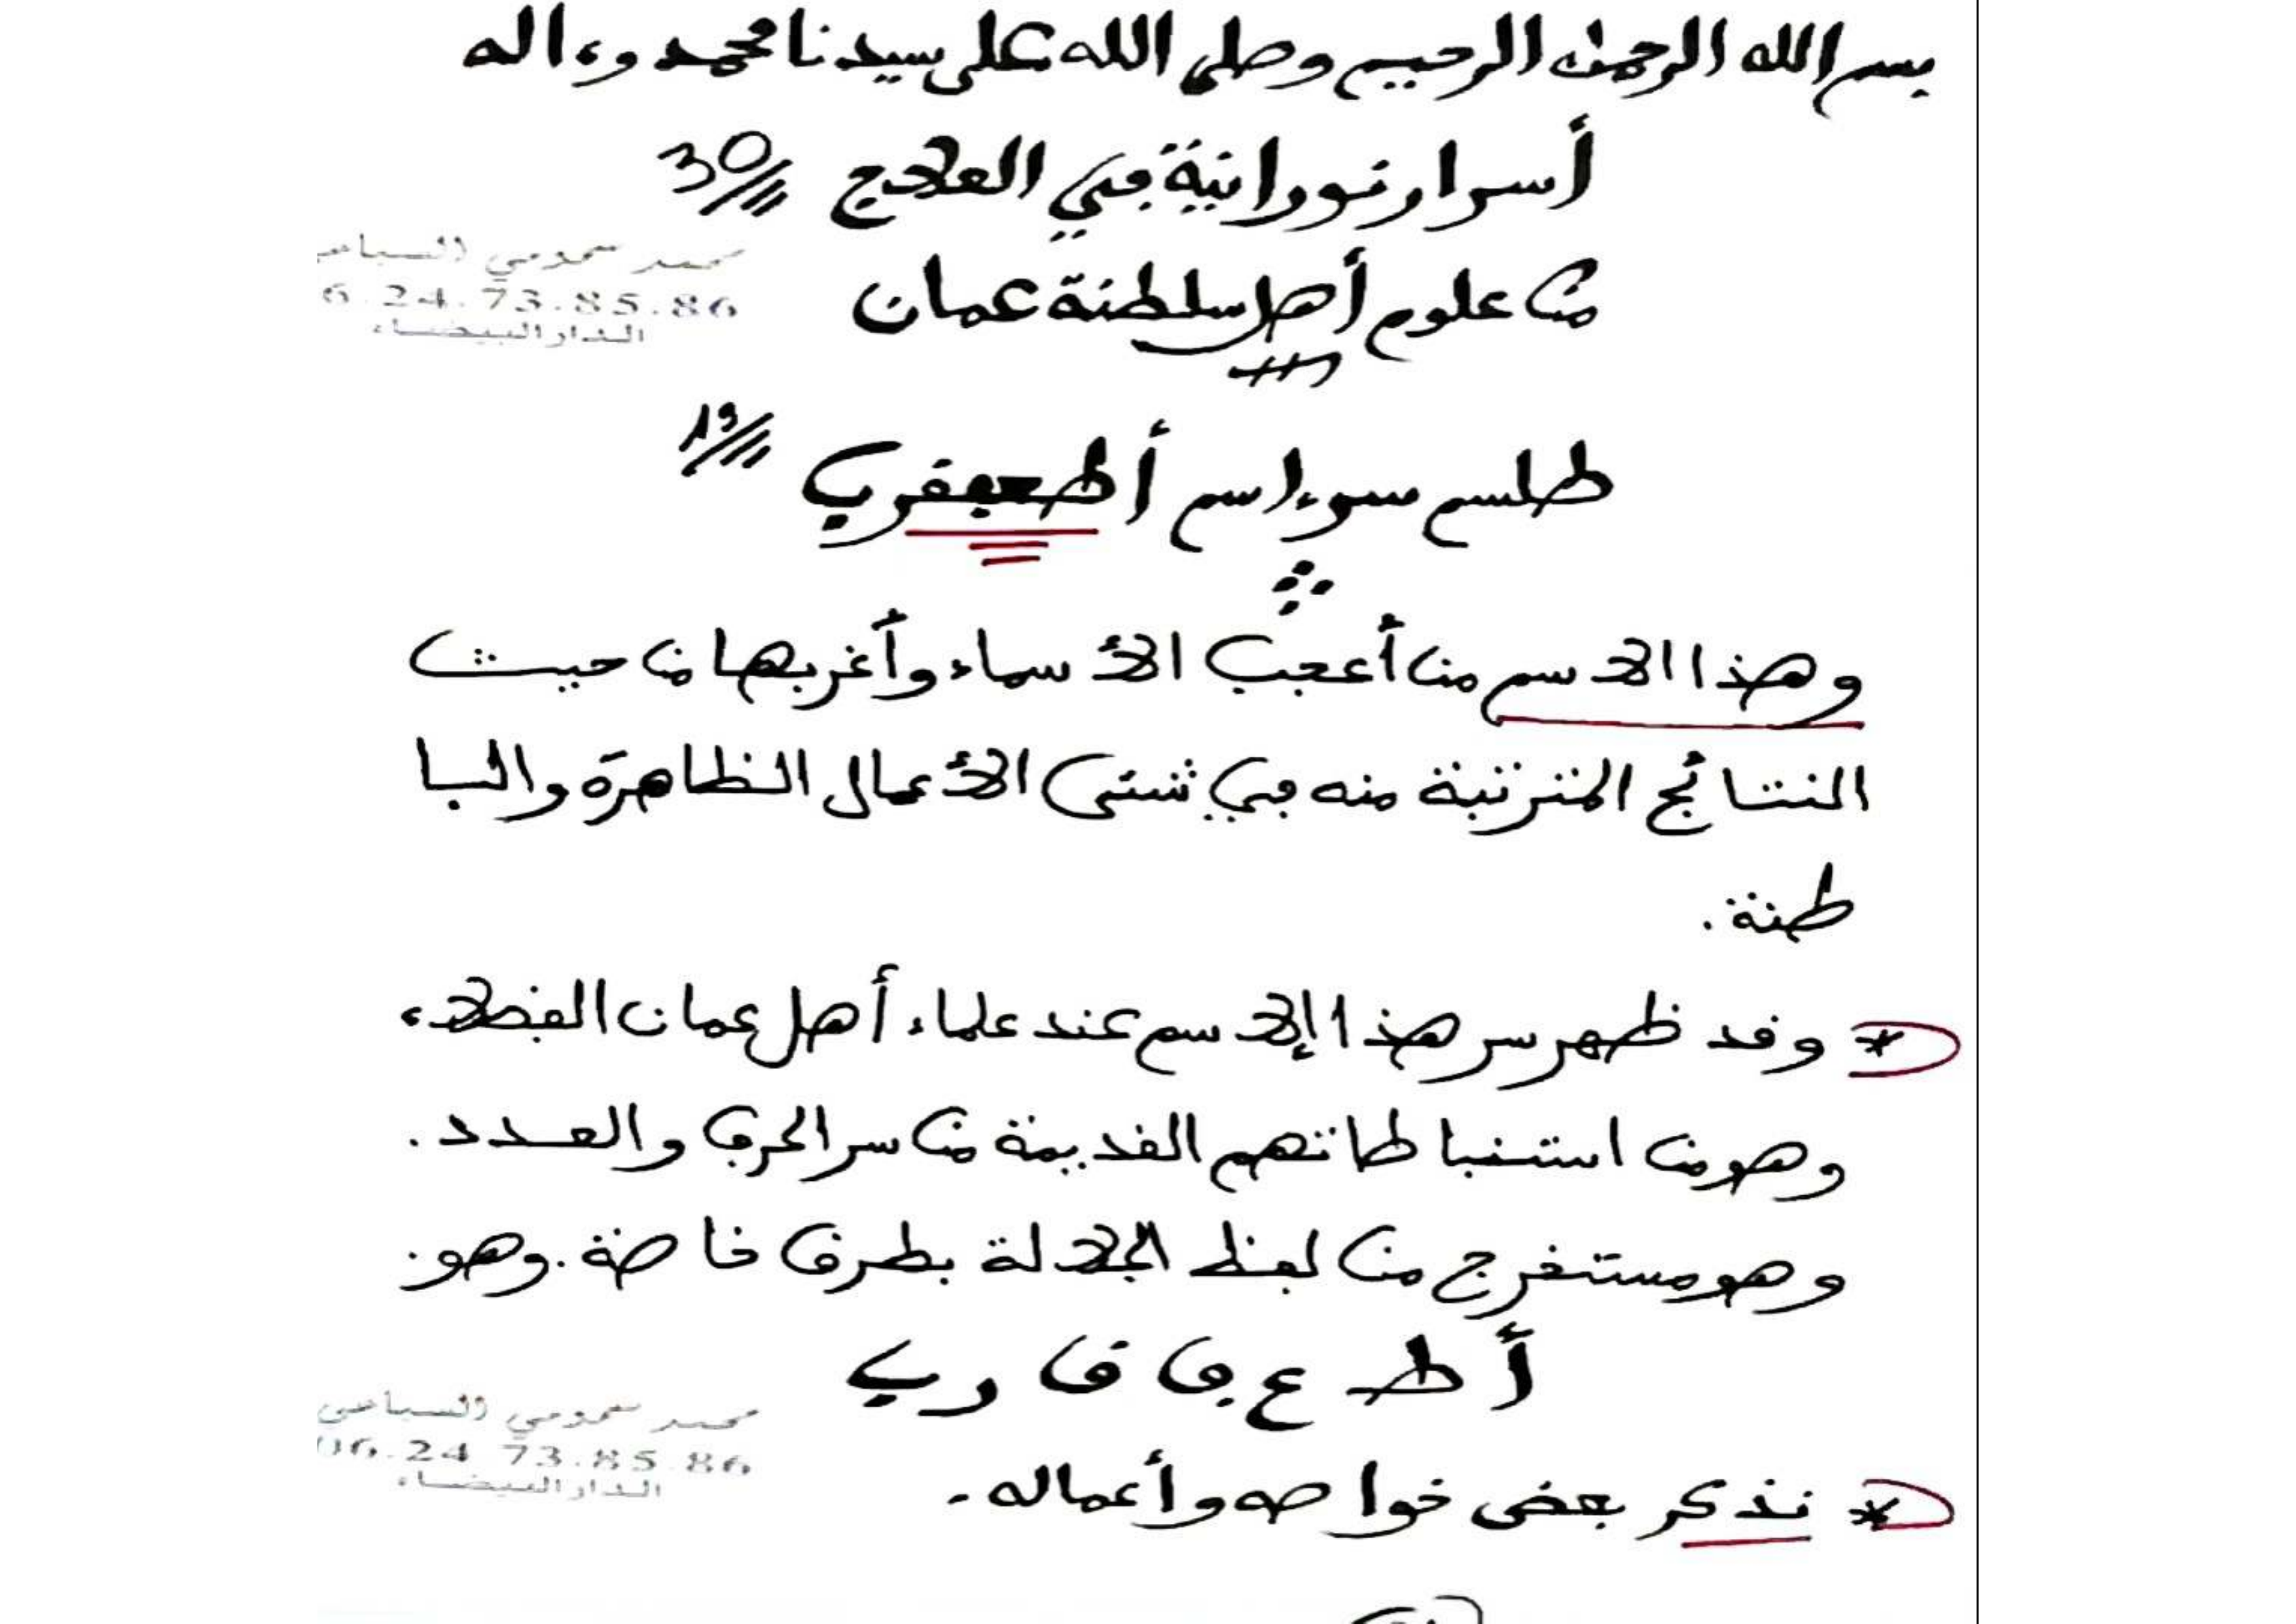 بسم الله الرحمن الرحيم وصلى الله على سيدنا محمد وءاله
أسرار نورانية في العلاج 30
من علوم أهل سلطنة عمان
محمد السباعي
6.24.73.85.86
الدار البيضاء
طلسم سر اسم أطعفقري
وهذا الاسم من أعجب الأسماء وأغربها من حيث
النتائج المترتبة منه في شتى الأعمال الظاهرة والبا
طنة.
* وقد ظهر سر هذا الإسم عند علماء أهل عمان الفضلاء
وهو من استنباطاتهم القديمة من سر الحرف والعدد.
وهو مستخرج من لفظ الجلالة بطرق خاصة. وهو:
أ ط ع ف ق ر ي
محمد السباعي
06.24.73.85.86
الدار البيضاء
* نذكر بعض خواصه وأعماله.